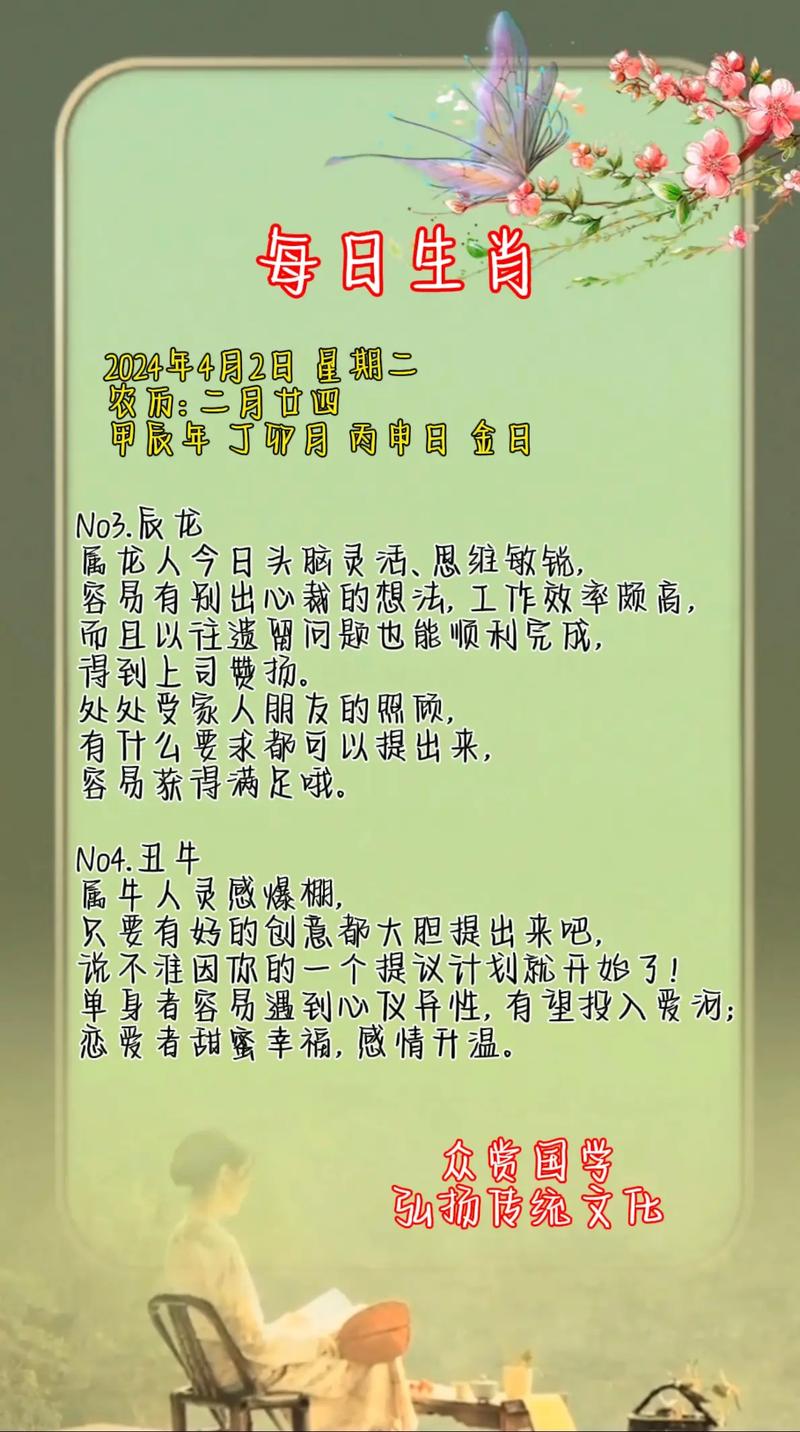 每日生肖
2024年4月2日 星期二
农历：二月廿四
甲辰年 丁卯月 丙申日 金日
No3.辰龙
属龙人今日头脑灵活、思维敏锐，
容易有别出心裁的想法，工作效率颇高，
而且以往遗留问题也能顺利完成，
得到上司赞扬。
处处受家人朋友的照顾，
有什么要求都可以提出来，
容易获得满足哦。
No4.丑牛
属牛人灵感爆棚，
只要有好的创意都大胆提出来吧，
说不准因你的一个提议计划就开始了！
单身者容易遇到心仪异性，有望投入爱河；
恋爱者甜蜜幸福，感情升温。
众赏国学
弘扬传统文化